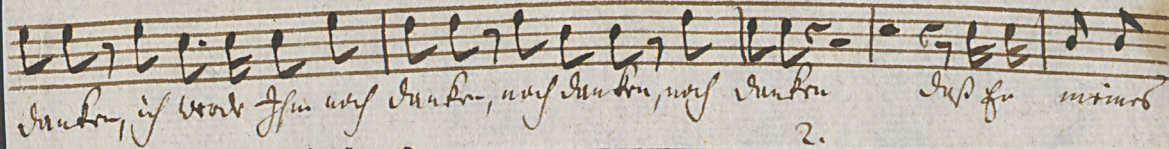 danken, ich werde Ihm noch danken, noch danken, noch danken daß Er meines
2.